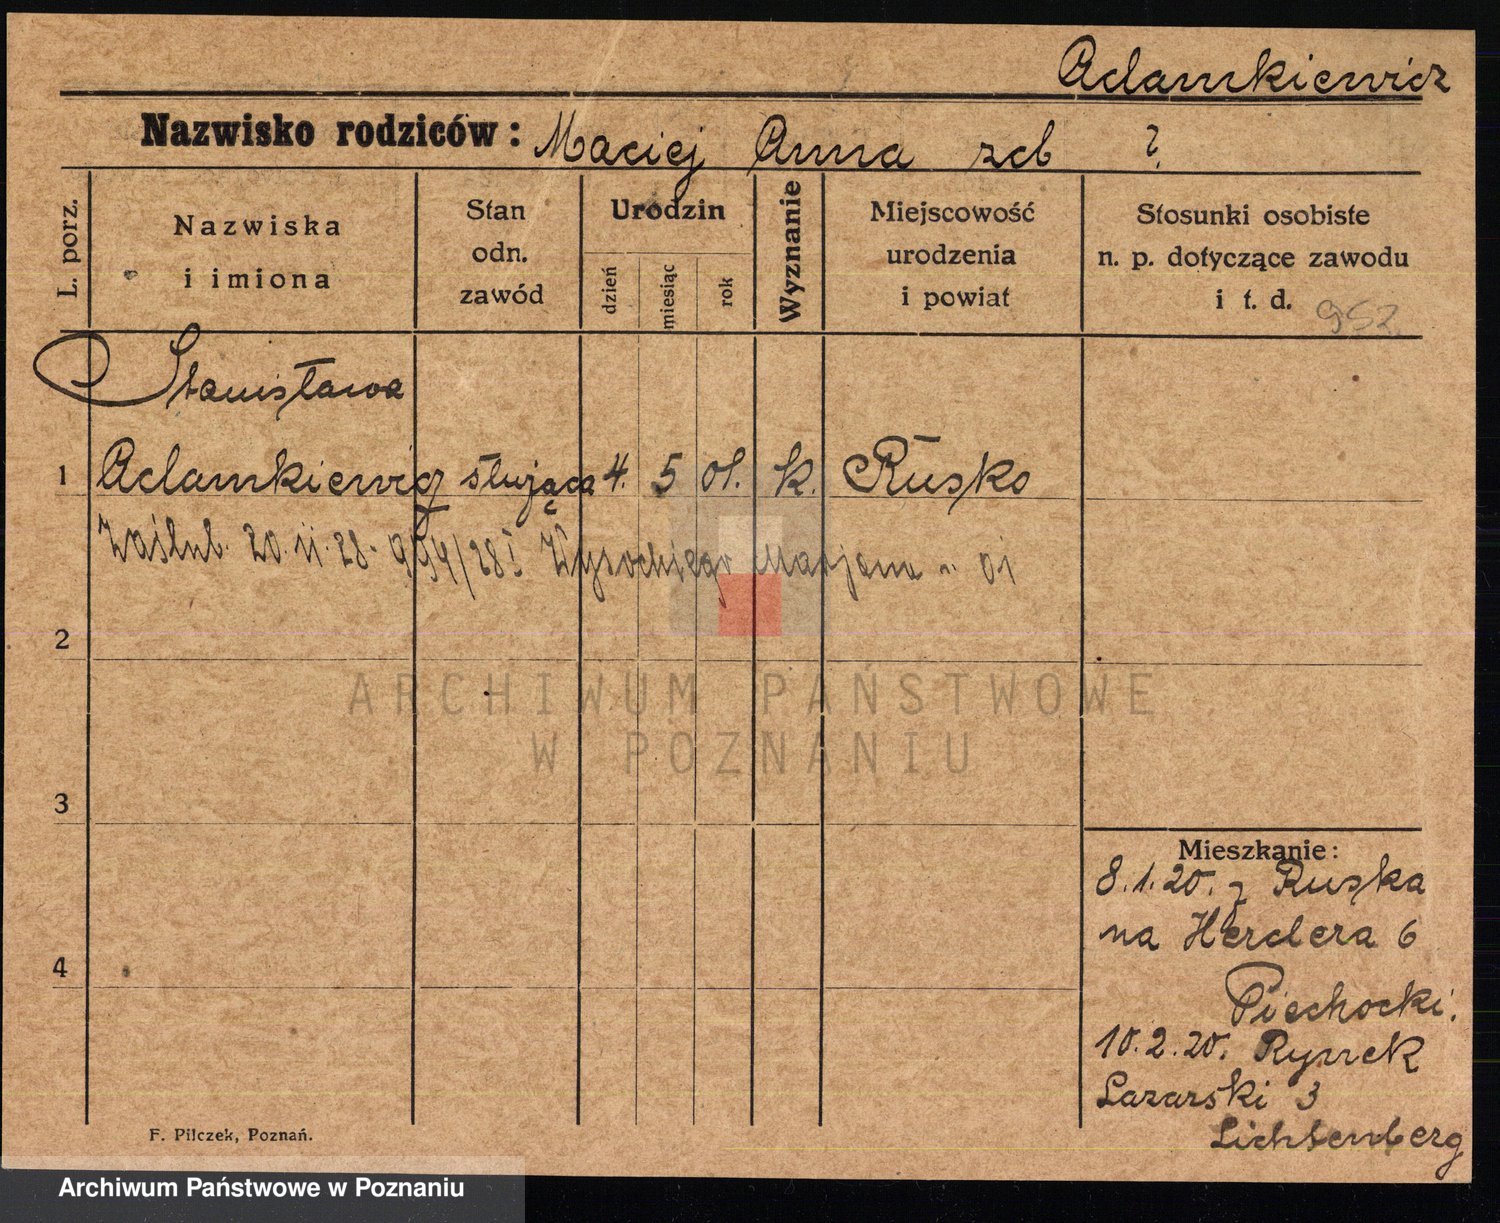 Adamkiewicz
Nazwisko rodziców: Maciej Anna zcb ?
L. porz.
Nazwiska
i imiona
Stan
odn.
zawód
Urodzin
dzień
miesiąc
rok
Wyznanie
Miejscowość
urodzenia
i powiat
Stosunki osobiste
n. p. dotyczące zawodu
i t. d. 952
Stanisława
1 Adamkiewicz służąca 4. 5 01. k. Rusko
Zaślub. 20.11.28 - 994/28 I Wysockiego Marjana " 01
2
ARCHIWUM PAŃSTWOWE
W POZNANIU
3
4
Mieszkanie:
8.1.20. z Ruska
na Herdera 6
Piechocki.
10.2.20. Rynek
Lazarski 3
Lichtenberg
F. Pilczek, Poznań.
Archiwum Państwowe w Poznaniu